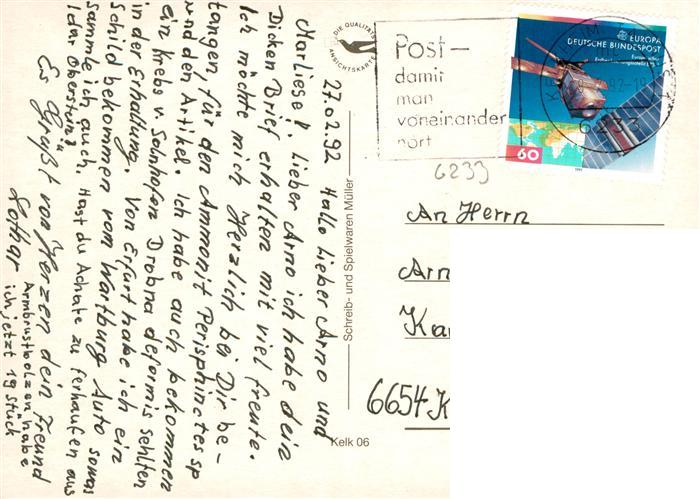 27.02.92 Hallo lieber Arno und
Marliese!. lieber Arno ich habe dein
Dicken Brief erhalten mit viel freute.
Ich möchte mich Herzlich bei Dir be-
tangen, für den Ammonit Perisphinctes sp
und den Artikel. Ich habe auch bekommen
ein Krebs v. Solnhofen Drobna deformis sehlten
in der Erhaltung. Von Erfurt habe ich ein
Schild bekommen vom Wartburg Auto sowas
sammle ich auch. Hast du Achate zu ferhaufen aus
Idar Oberstein?
Es Grüßt von Herzen dein Freund
Lothar
Armbrustbolzen habe
ich jetzt 19 Stück
DIE QUALITÄTS
ANSICHTSKARTE
Post-
damit
man
voneinander
hört
EUROPA
DEUTSCHE BUNDESPOST
60
1991
6233
6233
Schreib- und Spielwaren Müller
Kelk 06
An Herrn
Arn
Ka
6654 K